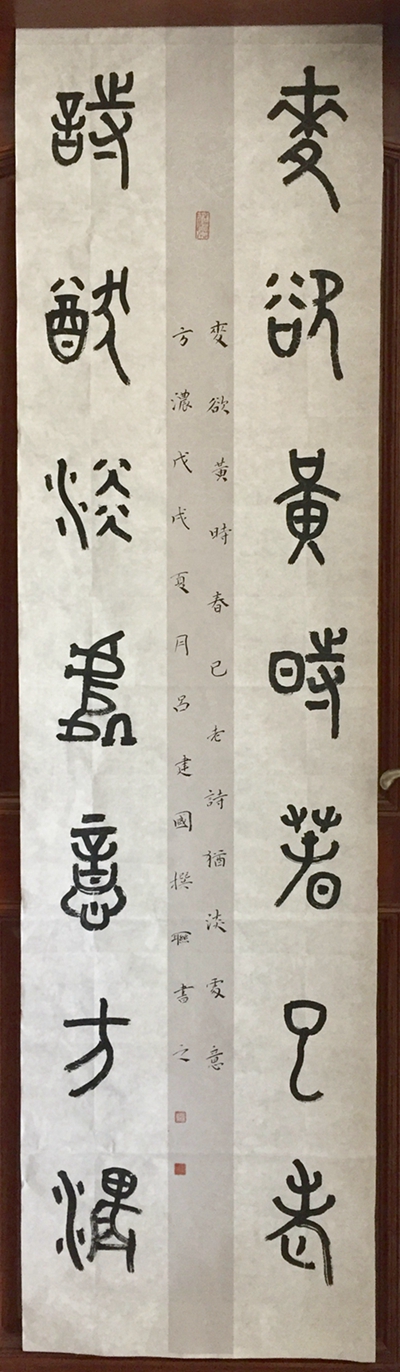 麥欲黃時春已老
麥欲黃時春已老詩猶淡處意
方濃戊戌夏月呂建國撰聯書之
詩猶淡處意方濃